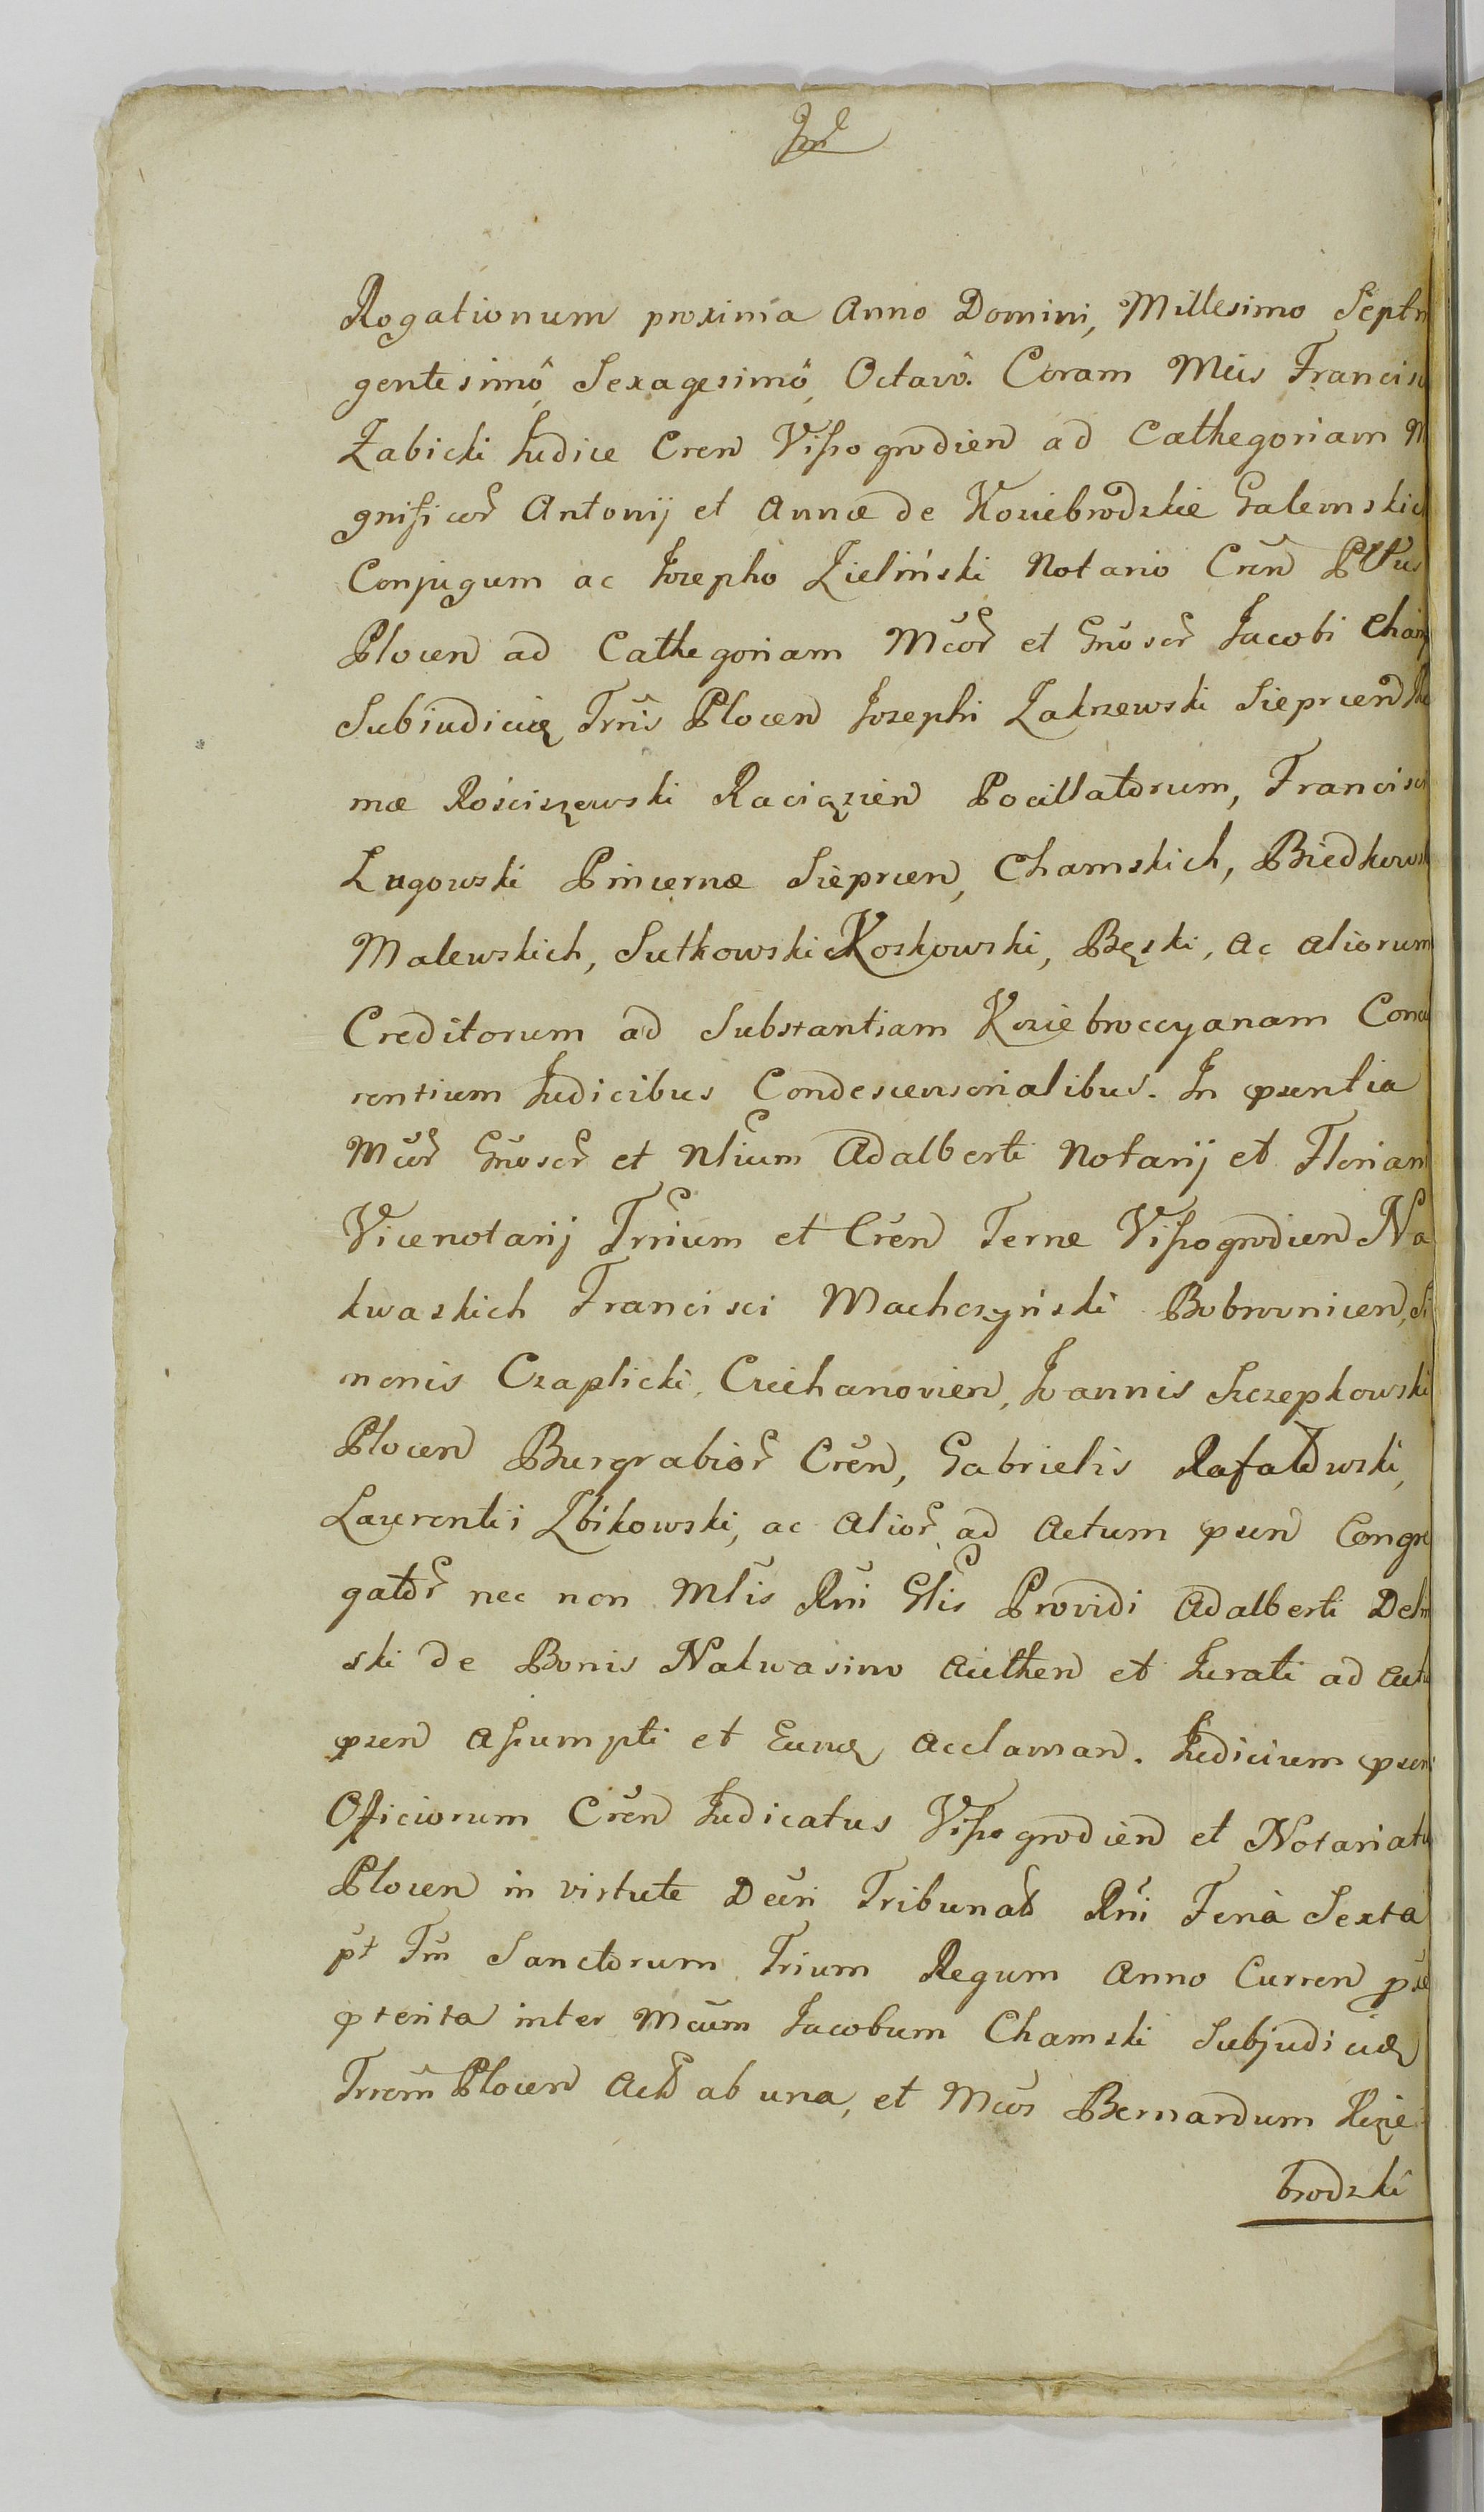 Rogationum proxima Anno Domini, Millesimo Septin
gentesimô, Sexagesimô, Octavô. Coram Mcis Francisc
Żabicki Judice Cren Vissogrodien ad Cathegoriam M
gnificor Antonij et Annæ de Koziebrodzkie Galemskich
Conjugum ac Josepho Zieliński Notario Cren Pltus
Plocen ad Cathegoriam Mcor et Gnosor Jacobi Cham
Subiudicis Trris Plocen Josephi Zakrzewski Sieprcen
mæ Rościszewski Raciązien Pocillatorum, Francisci
Lugowski Pincernæ Sieprcen, Chamskich, Biedkowsk
Malewskich, Sutkowski Koskowski, Bęski, ac aliorum
Creditorum ad Substantiam Koziebroccyanam Concu
rentium Judicibus Condescensorialibus. In psentia
Mcor Gnosor et Nlium Adalberti Notarij et Florian
Vicenotarij Trrium et Cren Terræ Vissogrodien Na
kwaskich Francisci Machczyński Bobrownicen, Si
monis Czaplicki, Ciechanovien, Joannis Szczepkowski
Plocen Burgrabior Cren, Gabrielis Rafałowski,
Laurentii Zbikowski, ac Alior ad Actum psen Congre
gator nec non Mlis Rni Glis Providi Adalberti
ski de Bonis Nakwasino Authen et Jurati ad Actu
psen Assumpti et Acclaman. Judicium psens
Officiorum Cren Judicatus Vissogrodien et Notariatu
Plocen in virtute Decri Tribunal Rni Feria Sexta
pt Fm Sanctorum Trium Regum Anno Curren
pterita inter Mcum Jacobum Chamski Subjudicem
Trrem Plocen ab una, et Mcos Bernardum Kozie
brodzki